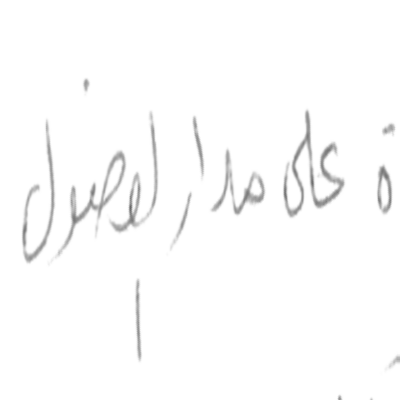 ة على مدار الفصول